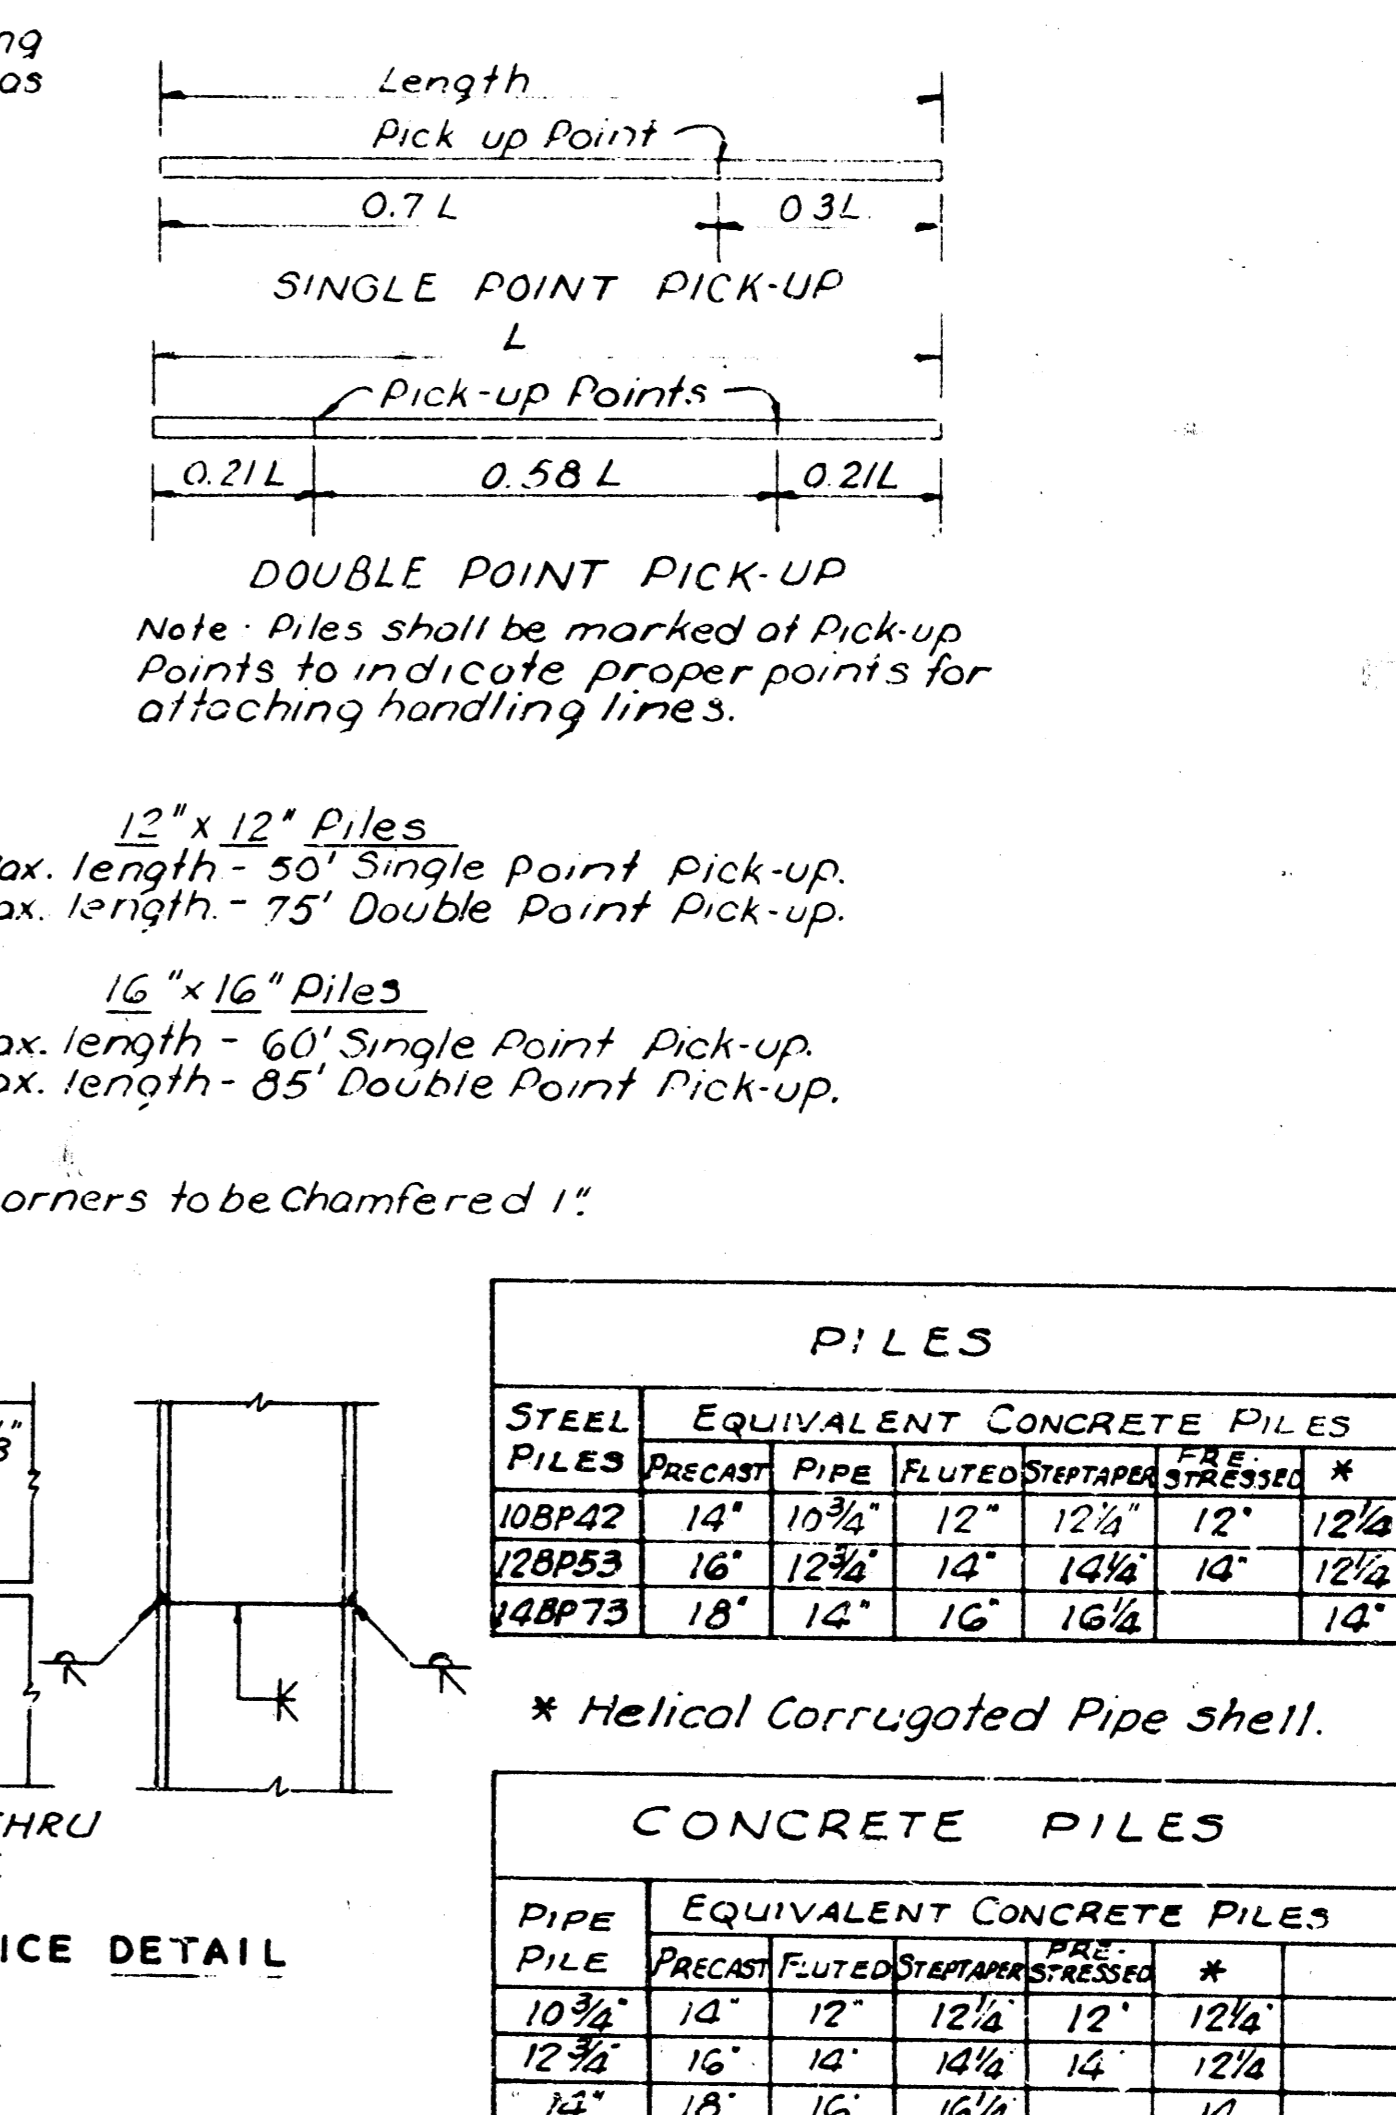 ng
as
Length
Pick up Point
0.7 L
0.3L
SINGLE POINT PICK-UP
L
Pick-up Points
0.21L 0.58 L 0.21L
DOUBLE POINT PICK-UP
Note: Piles shall be marked at Pick-up
Points to indicate proper points for
attaching handling lines.
12" x 12" Piles
ax. length - 50' Single Point Pick-up.
ax. length - 75' Double Point Pick-up.
16" x 16" Piles
ax. length - 60' Single Point Pick-up.
ax. length - 85' Double Point Pick-up.
orners to be Chamfered 1".
PILES
STEEL PILES
EQUIVALENT CONCRETE PILES
PRECAST PIPE FLUTED STEPTAPER PRE-STRESSED *
10BP42 14" 10 3/4" 12" 12 1/4" 12" 12 1/4
12BP53 16" 12 3/4" 14" 14 1/4" 14" 12 1/4
14BP73 18" 14" 16" 16 1/4 14"
* Helical Corrugated Pipe shell.
HRU
ICE DETAIL
CONCRETE PILES
PIPE PILE
EQUIVALENT CONCRETE PILES
PRECAST FLUTED STEPTAPER PRE-STRESSED *
10 3/4" 14" 12" 12 1/4" 12" 12 1/4"
12 3/4" 16" 14" 14 1/4" 14" 12 1/4
14" 18" 16" 16 1/4" 14